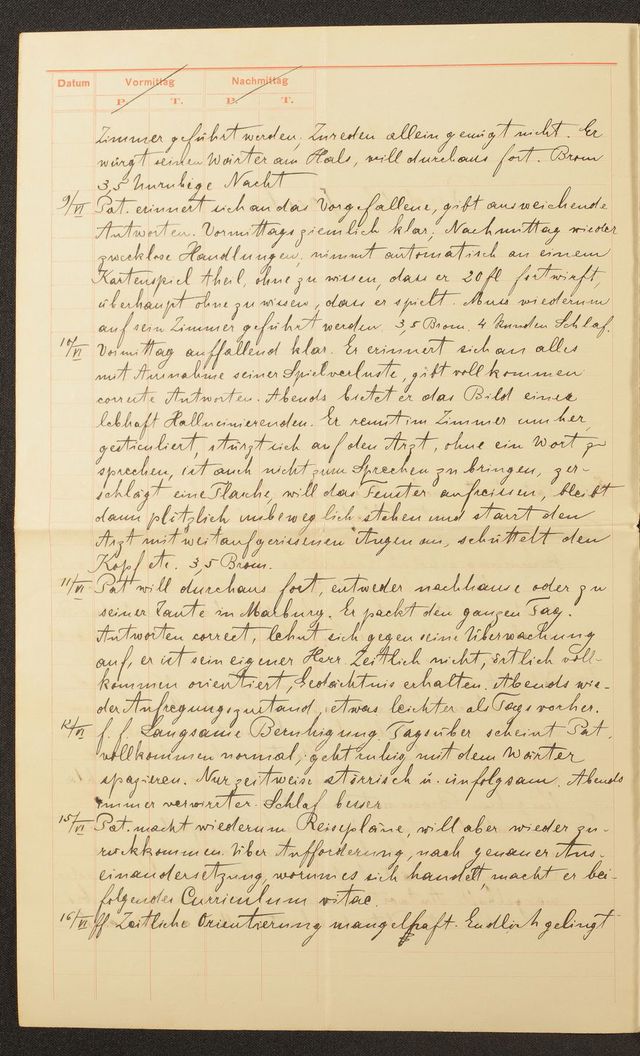 Datum Vormittag Nachmittag
P. T. P. T.
Zimmer geführt werden, Zureden allein genügt nicht. Er
würgt seinen Wärter am Hals, will durchaus fort. Brom
3,5 Unruhige Nacht
9/VI Pat. erinnert sich an das Vorgefallene, gibt ausweichende
Antworten. Vormittags ziemlich klar, Nachmittag wieder
zwecklose Handlungen, nimmt automatisch an einem
Kartenspiel theil, ohne zu wissen, dass er 20 fl fortwirft,
überhaupt ohne zu wissen, dass er spielt. Muss wiederum
auf sein Zimmer geführt werden. 3,5 Brom. 4 Stunden Schlaf.
10/VI Vormittag auffallend klar. Er erinnert sich an alles
mit Ausnahme seiner Spielverluste, gibt vollkommen
correcte Antworten. Abends bietet er das Bild eines
lebhaft Hallucinierenden. Er rennt im Zimmer umher,
gesticuliert, stürzt sich auf den Arzt, ohne ein Wort zu
sprechen, ist auch nicht zum Sprechen zu bringen, zer-
schlägt eine Flasche, will das Fenster aufreissen, bleibt
dann plötzlich unbeweglich stehen und starrt den
Arzt mit weit aufgerissenen Augen an, schüttelt den
Kopf etc. 3,5 Brom.
11/VI Pat will durchaus fort, entweder nachhause oder zu
seiner Tante in Marburg. Er packt den ganzen Tag.
Antworten correct, lehnt sich gegen seine Überwachung
auf, er ist sein eigener Herr. Zeitlich nicht, örtlich voll-
kommen orientiert, Gedächtnis erhalten. Abends wie-
der Aufregungszustand, etwas leichter als Tags vorher.
12/VI f. f. Langsame Beruhigung. Tagsüber scheint Pat.
vollkommen normal, geht ruhig mit dem Wärter
spazieren. Nur zeitweise störrisch u. unfolgsam. Abends
immer verwirrter. Schlaf besser
15/VI Pat. macht wiederum Reisepläne, will aber wieder zu-
rückkommen. Über Aufforderung, nach genauer Aus-
einandersetzung, worum es sich handelt, macht er bei-
folgendes Curriculum vitae.
16/VI ff Zeitliche Orientierung mangelhaft. Endlich gelingt